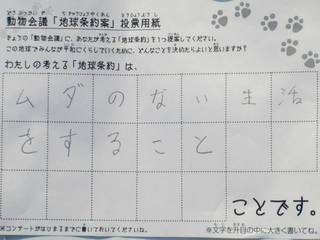 動物会議「地球条約案」投票用紙
きょうの「動物会議」に、あなたが考える「地球条約」を1つ提案してください。
この地球でみんなが平和にくらしていくために、どんなことを決めたらよいと思いますか?
わたしの考える「地球条約」は、
ムダのない生活
をすること
ことです。
※コンサートがはじまるまでに書いておいてくださいね。
※文字を升目の中に大きく書いてね。